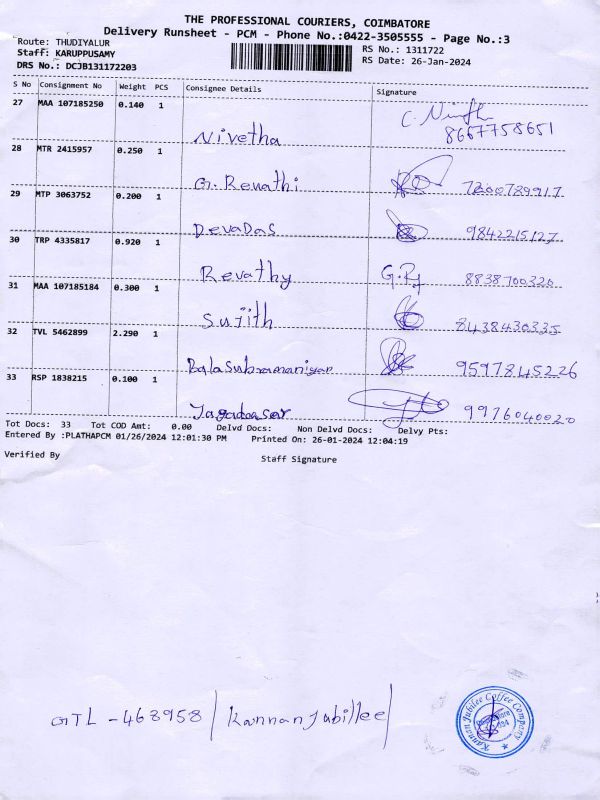 THE PROFESSIONAL COURIERS, COIMBATORE
Delivery Runsheet - PCM - Phone No.:0422-3505555 - Page No.:3
Route: THUDIYALUR RS No.: 1311722
Staff: KARUPPUSAMY RS Date: 26-Jan-2024
DRS No.: DCJB131172203
S No Consignment No Weight PCS Consignee Details Signature
27 MAA 107185250 0.140 1
Nivetha 8667758651
28 MTR 2415957 0.250 1
G. Revathi 7200789917
29 MTP 3063752 0.200 1
DevaDas 9842215127
30 TRP 4335817 0.920 1
Revathy G.R 8838700320
31 MAA 107185184 0.300 1
Sujith 8438430335
32 TVL 5462899 2.290 1
Balasubramaniyan 9597845226
33 RSP 1838215 0.100 1
9976040020
Tot Docs: 33 Tot COD Amt: 0.00 Delvd Docs: Non Delvd Docs: Delvy Pts:
Entered By :PLATHAPCM 01/26/2024 12:01:30 PM Printed On: 26-01-2024 12:04:19
Verified By Staff Signature
GTL - 468958 / Kannan Jubillee
Kannan Jubilee Coffee Company